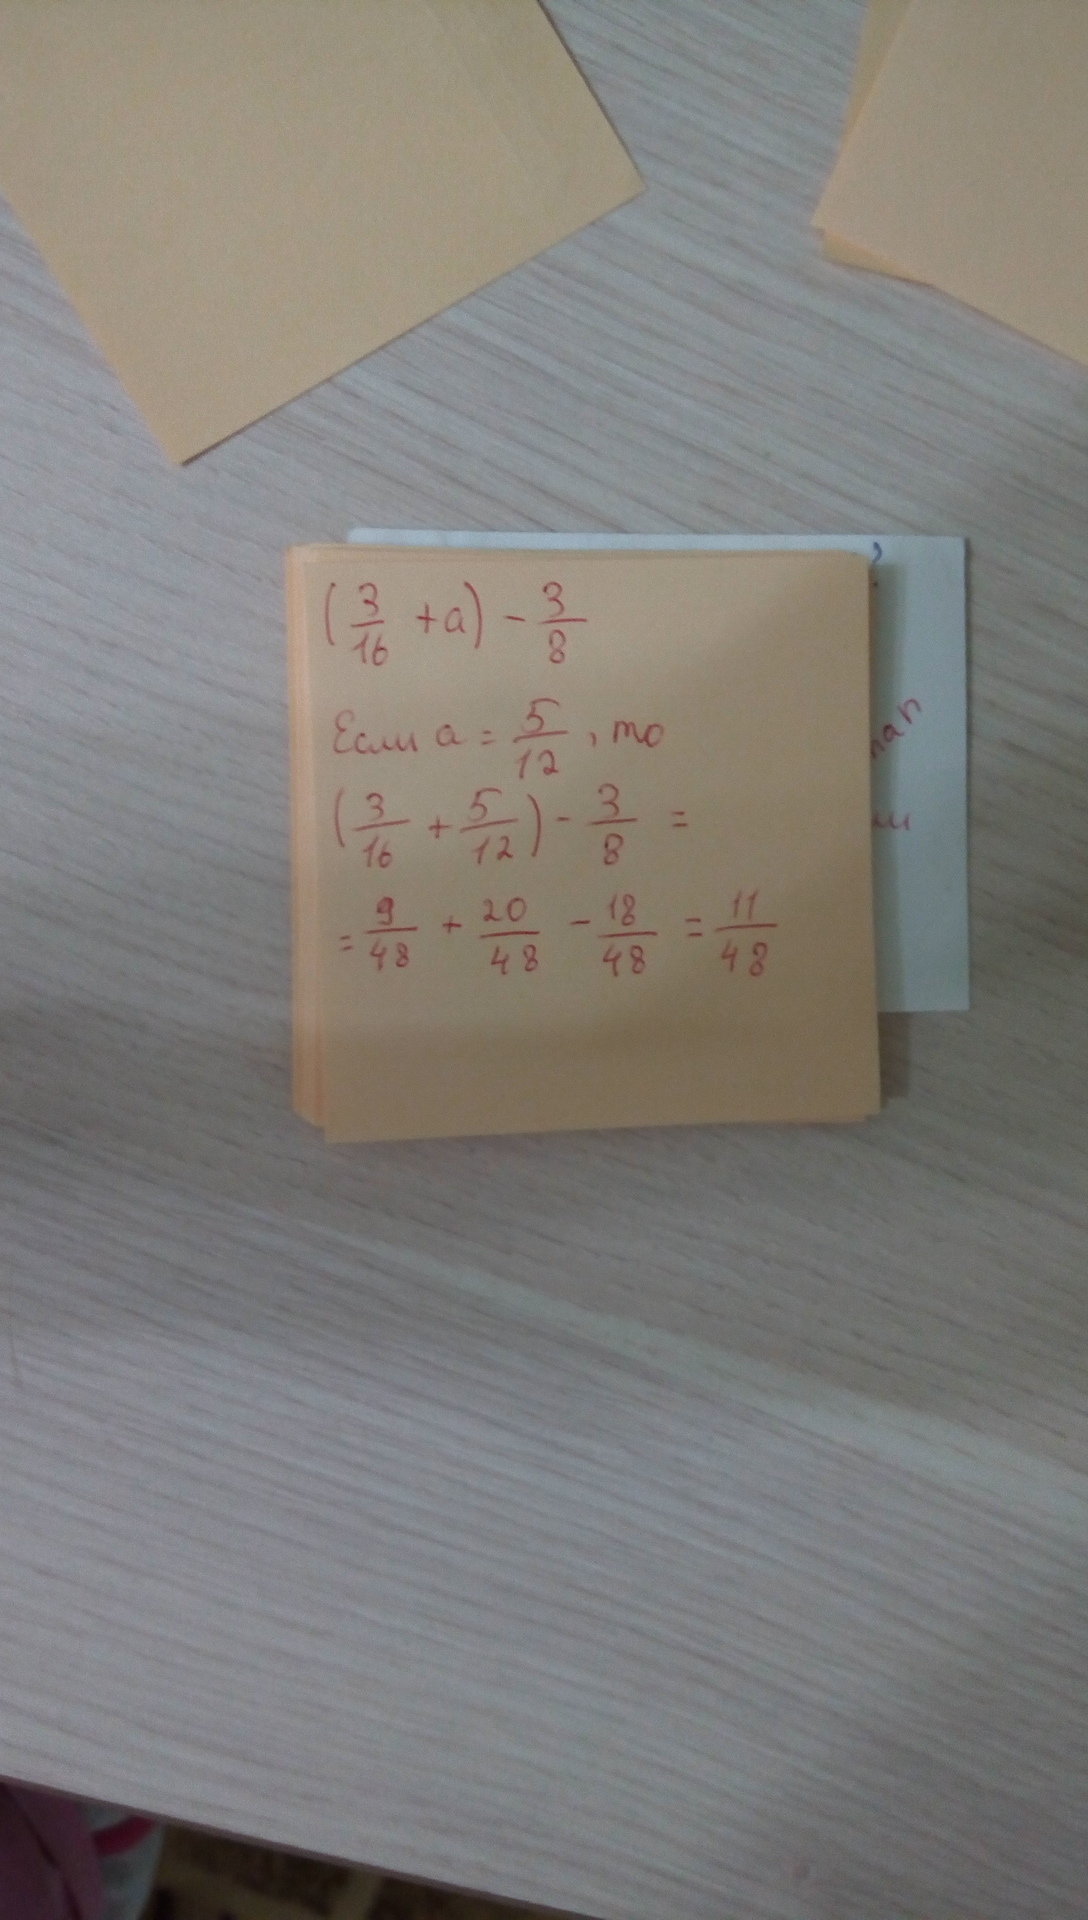 (3/16 + a) - 3/8
Если a = 5/12, то
(3/16 + 5/12) - 3/8 =
= 9/48 + 20/48 - 18/48 = 11/48